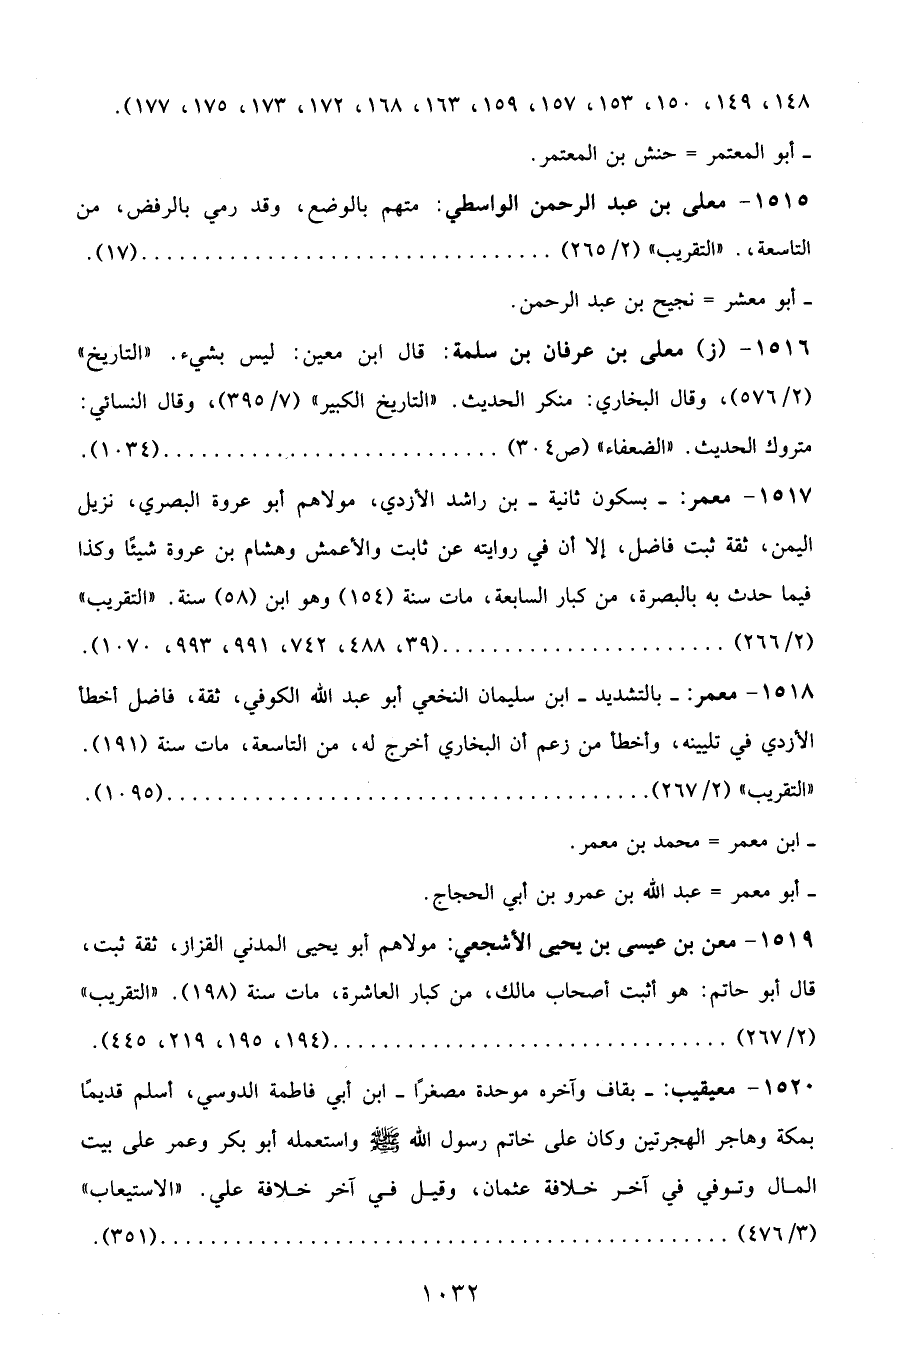 ١٤٨، ١٤٩، ١٥٠، ١٥٣، ١٥٧، ١٥٩، ١٦٣، ١٦٨، ١٧٢، ١٧٣، ١٧٥، ١٧٧).
ـ أبو المعتمر = حنش بن المعتمر.
١٥١٥- معلى بن عبد الرحمن الواسطي: متهم بالوضع، وقد رمي بالرفض، من
التاسعة،. «التقريب» (٢/ ٢٦٥) .................................(١٧).
ـ أبو معشر = نجيح بن عبد الرحمن.
١٥١٦- (ز) معلى بن عرفان بن سلمة: قال ابن معين: ليس بشيء. «التاريخ»
(٢/ ٥٧٦)، وقال البخاري: منكر الحديث. «التاريخ الكبير» (٧/ ٣٩٥)، وقال النسائي:
متروك الحديث. «الضعفاء» (ص٣٠٤) ...........................(١٠٣٤).
١٥١٧- معمر: ـ بسكون ثانية ـ بن راشد الأزدي، مولاهم أبو عروة البصري، نزيل
اليمن، ثقة ثبت فاضل، إلا أن في روايته عن ثابت والأعمش وهشام بن عروة شيئًا وكذا
فيما حدث به بالبصرة، من كبار السابعة، مات سنة (١٥٤) وهو ابن (٥٨) سنة. «التقريب»
(٢/ ٢٦٦) .......................(٣٩، ٤٨٨، ٧٤٢، ٩٩١، ٩٩٣، ١٠٧٠).
١٥١٨- معمر: ـ بالتشديد ـ ابن سليمان النخعي أبو عبد الله الكوفي، ثقة، فاضل أخطأ
الأزدي في تليينه، وأخطأ من زعم أن البخاري أخرج له، من التاسعة، مات سنة (١٩١).
«التقريب» (٢/ ٢٦٧).......................................(١٠٩٥).
ـ ابن معمر = محمد بن معمر.
ـ أبو معمر = عبد الله بن عمرو بن أبي الحجاج.
١٥١٩- معن بن عيسى بن يحيى الأشجعي: مولاهم أبو يحيى المدني القزاز، ثقة ثبت،
قال أبو حاتم: هو أثبت أصحاب مالك، من كبار العاشرة، مات سنة (١٩٨). «التقريب»
(٢/ ٢٦٧) ................................(١٩٤، ١٩٥، ٢١٩، ٤٤٥).
١٥٢٠- معيقيب: ـ بقاف وآخره موحدة مصغرًا ـ ابن أبي فاطمة الدوسي، أسلم قديمًا
بمكة وهاجر الهجرتين وكان على خاتم رسول الله ﷺ واستعمله أبو بكر وعمر على بيت
المال وتوفي في آخر خلافة عثمان، وقيل في آخر خلافة علي. «الاستيعاب»
(٣/ ٤٧٦) ..............................................(٣٥١).
١٠٣٢